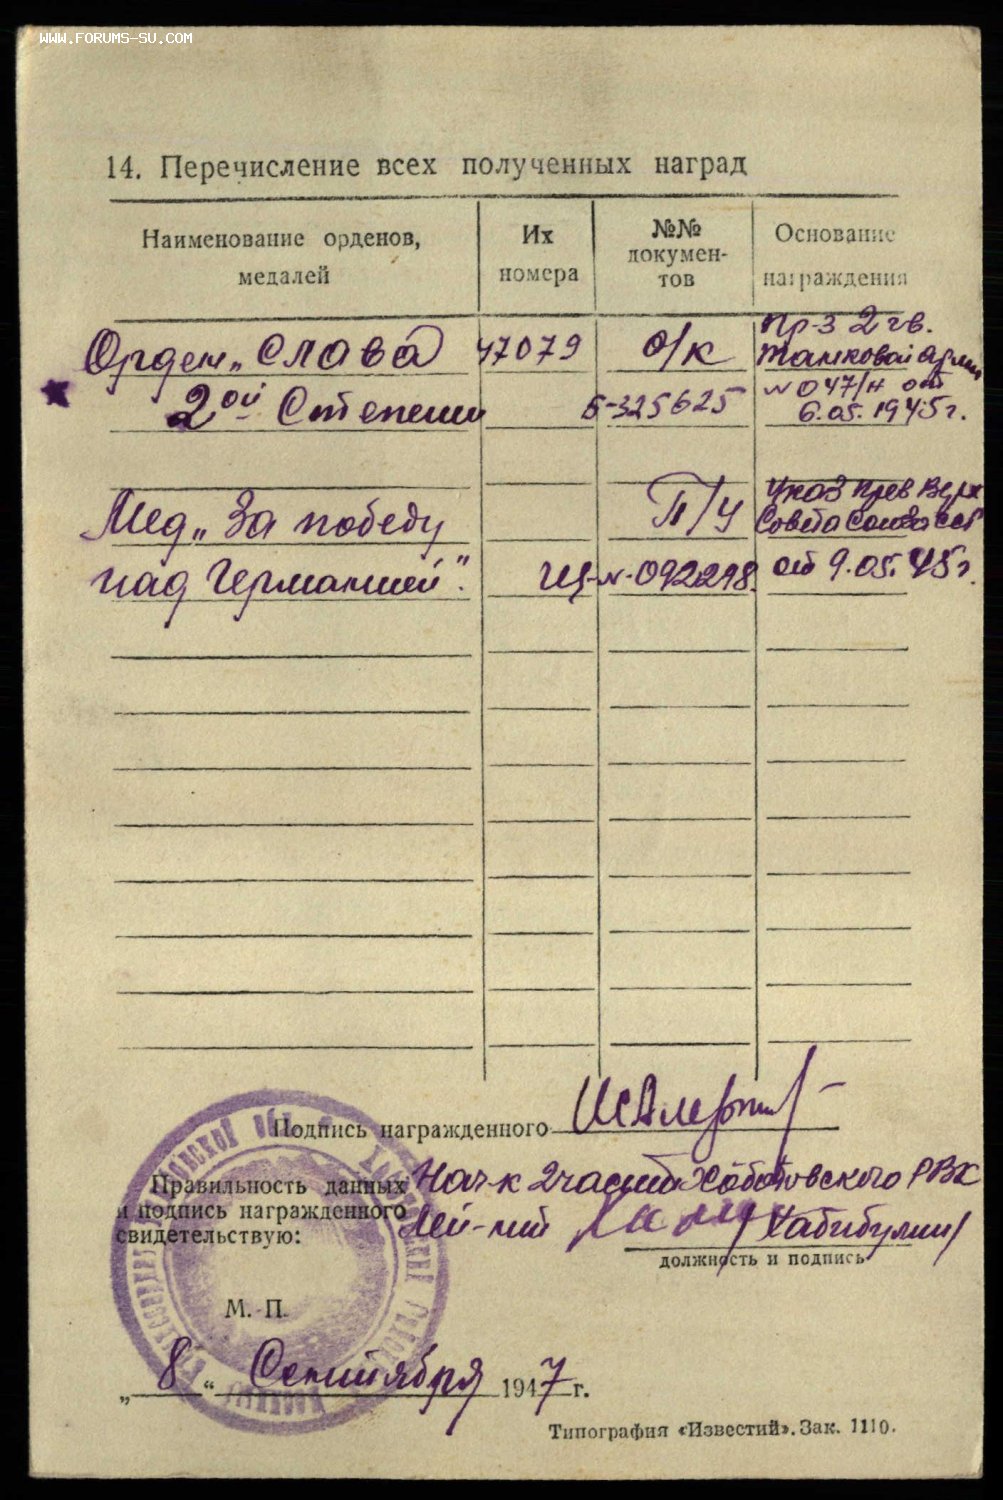 WWW.FORUMS-SU.COM
14. Перечисление всех полученных наград
Наименование орденов, медалей
Их номера
№№ докумен-
тов
Основание награждения
Орден „Слава 47079 о/к Пр-з 2 гв.
танковой
2ой Степени Б-325625 № 047/н от
6.05.1945 г.
Мед „За победу П/У Указ През Верх
Совета Союза ССР
над Германией". Щ-№-092298. от 9.05.45 г.
Подпись награжденного
Правильность данных
и подпись награжденного
свидетельствую:
Нач-к 2 части Хоботовского РВК
Лей-нт Хабибулин
должность и подпись
М. П.
„8“ Сентября 1947 г.
Типография «Известий». Зак. 1110.